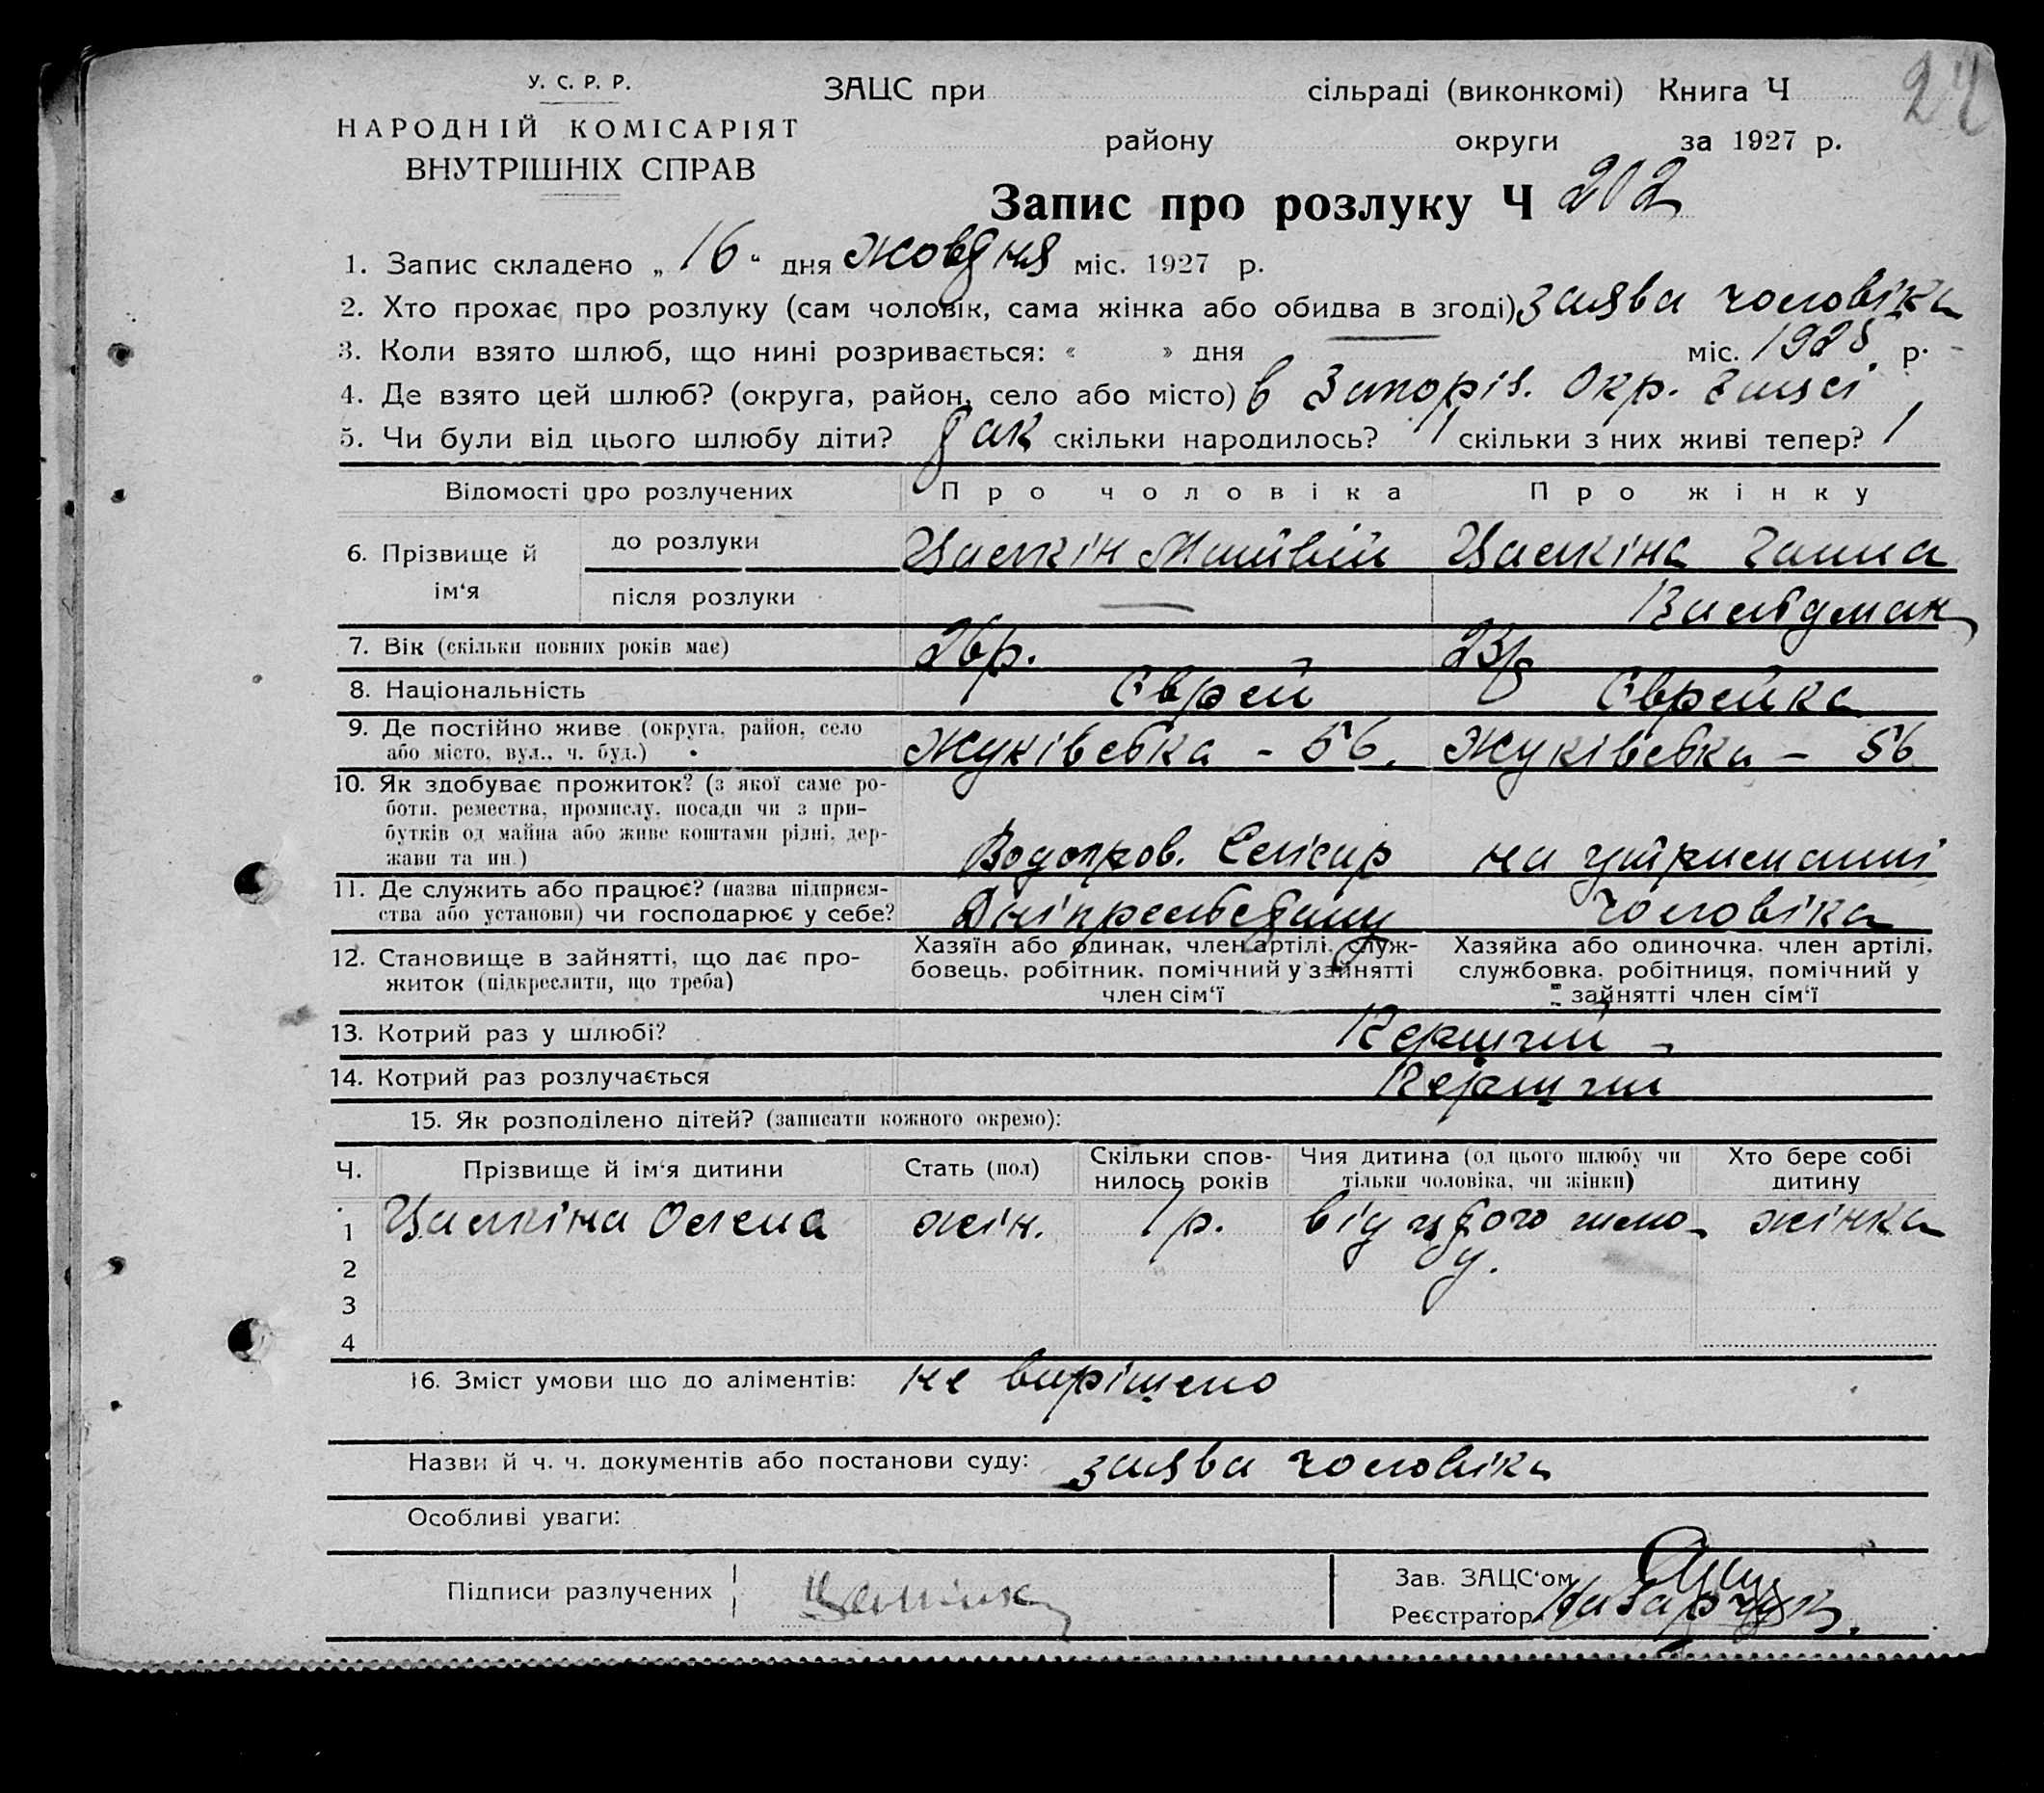 24
У. С. Р. Р.
НАРОДНІЙ КОМІСАРІЯТ
ВНУТРІШНІХ СПРАВ
ЗАЦС при сільраді (виконкомі) Книга Ч
району округи за 1927 р.
Запис про розлуку Ч 202
1. Запис складено „ 16 “ дня жовтня міс. 1927 р.
2. Хто прохає про розлуку (сам чоловік, сама жінка або обидва в згоді) заява чоловіка
3. Коли взято шлюб, що нині розривається: « » дня — міс. 1925 р.
4. Де взято цей шлюб? (округа, район, село або місто) в Запоріз. Окр. Загсі
5. Чи були від цього шлюбу діти? так скільки народилось? 1 скільки з них живі тепер? 1
Відомості про розлучених Про чоловіка Про жінку
6. Прізвище й ім‘я до розлуки Цалкін Матвій Цалкіна Ганна
після розлуки — Вальдман
7. Вік (скільки повних років має) 26 р. 23 р
8. Національність Єврей Єврейка
9. Де постійно живе (округа, район, село
або місто, вул., ч. буд.) Жуківська - 56. Жуківська - 56
10. Як здобуває прожиток? (з якої саме ро-
боти, ремества, промислу, посади чи з при-
бутків од майна або живе коштами рідні, дер-
жави та ин.) Водопров. Слюсар на утриманні
11. Де служить або працює? (назва підприєм-
ства або установи) чи господарює у себе? чоловіка
12. Становище в зайнятті, що дає про-
житок (підкреслити, що треба)
Хазяїн або одинак, член артілі, служ-
бовець, робітник, помічний у зайнятті
член сім‘ї
Хазяйка або одиночка, член артілі,
службовка, робітниця, помічний у
зайнятті член сім‘ї
13. Котрий раз у шлюбі? Перший
14. Котрий раз розлучається Перший
15. Як розподілено дітей? (записати кожного окремо):
Ч. Прізвище й ім‘я дитини Стать (пол) Скільки спов-
нилось років Чия дитина (од цього шлюбу чи
тільки чоловіка, чи жінки) Хто бере собі
дитину
1 Цалкіна Олена жін. 1 р. від цього шлю-
бу. жінка
2
3
4
16. Зміст умови що до аліментів: не вирішено
Назви й ч. ч. документів або постанови суду: заява чоловіка
Особливі уваги:
Підписи разлучених
Зав. ЗАЦС‘ом
Реєстратор Назарчук.